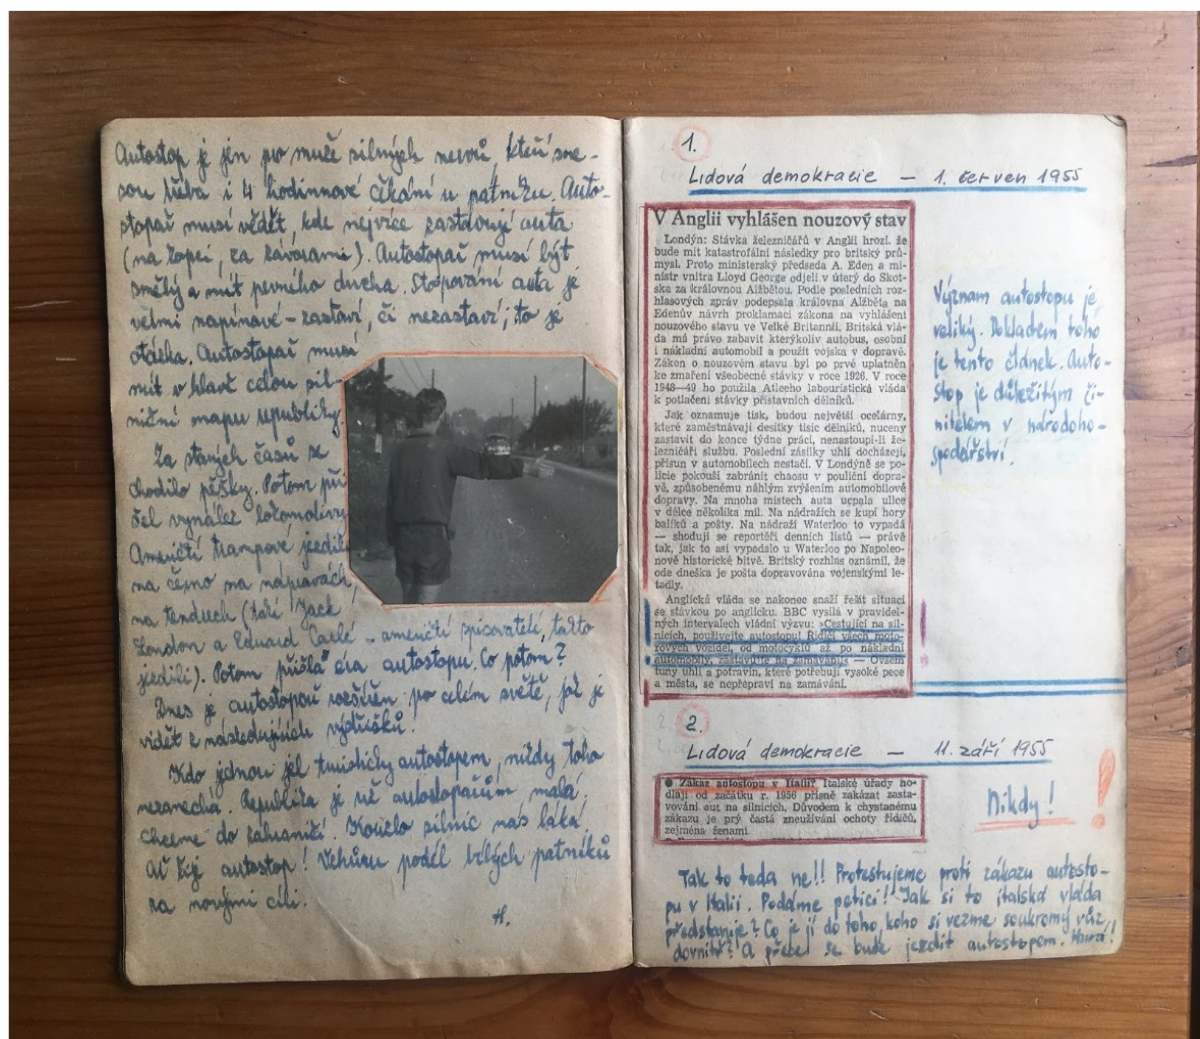 Autostop je jen pro muže silných nervů, kteří sne-
sou třeba i 4 hodinnové čekání u patníku. Auto-
stopař musí vědět, kde nejvíce zastavují auta
(na kopci, za závorami). Autostopař musí být
smělý a mít pevného ducha. Stopování auta je
velmi napínavé - zastaví, či nezastaví, to je
otázka. Autostopař musí
mít v hlavě celou sil-
niční mapu republiky.
Za starých časů se
chodilo pěšky. Potom při
šel vynález lokomotivy
Američtí trampové jezdili
na černo na nápravách,
na tendrech (také Jack
London a Eduard - američtí spisovatelé, takto
jezdili). Potom přišla éra autostopu. Co potom?
Dnes je autostop rozšířen po celém světě, jak je
vidět z následujících výstřižků.
Kdo jednou jel turisticky autostopem, nikdy toho
nezanechá. Republika je už autostopařům malá.
Chceme do zahraničí. Kouzlo silnic nás láká.
Ať žije autostop! Vzhůru podél bílých patníků
za novými cíli.
H.
1.
Lidová demokracie — 1. červen 1955
V Anglii vyhlášen nouzový stav
Londýn: Stávka železničářů v Anglii hrozí, že
bude mít katastrofální následky pro britský prů-
mysl. Proto ministerský předseda A. Eden a mi-
nistr vnitra Lloyd George odjeli v úterý do Skot-
ska za královnou Alžbětou. Podle posledních roz-
hlasových zpráv podepsala královna Alžběta na
Edenův návrh proklamaci zákona na vyhlášení
nouzového stavu ve Velké Britannii. Britská vlá-
da má právo zabavit kterýkoliv autobus, osobní
i nákladní automobil a použít vojska v dopravě.
Zákon o nouzovém stavu byl po prvé uplatněn
ke zmaření všeobecné stávky v roce 1926. V roce
1948—49 ho použila Atleeho labouristická vláda
k potlačení stávky přístavních dělníků.
Jak oznamuje tisk, budou největší ocelárny,
které zaměstnávají desítky tisíc dělníků, nuceny
zastavit do konce týdne práci, nenastoupí-li že-
lezničáři službu. Poslední zásilky uhlí docházejí,
přísun v automobilech nestačí. V Londýně se po-
licie pokouší zabránit chaosu v pouliční dopra-
vě, způsobenému náhlým zvýšením automobilové
dopravy. Na mnoha místech auta ucpala ulice
v délce několika mil. Na nádražích se kupí hory
balíků a pošty. Na nádraží Waterloo to vypadá
— shodují se reportéři denních listů — právě
tak, jak to asi vypadalo u Waterloo po Napoleo-
nově historické bitvě. Britský rozhlas oznámil, že
ode dneška je pošta dopravována vojenskými le-
tadly.
Anglická vláda se nakonec snaží řešit situaci
se stávkou po anglicku. BBC vysílá v pravidel-
ných intervalech vládní výzvu: »Cestující na sil-
nicích, používejte autostopu! Řidiči všech moto-
rových vozidel, od motocyklů až po nákladní
automobily, zastavujte na zamávání« — Ovšem
tuny uhlí a potravin, které potřebují vysoké pece
a města, se nepřepraví na zamávání.
Význam autostopu je
veliký. Dokladem toho
je tento článek. Auto-
stop je důležitým či-
nitelem v národoho-
spodářství.
2.
Lidová demokracie — 11. září 1955
● Zákaz autostopu v Italii? Italské úřady ho-
dlají od začátku r. 1956 přísně zakázat zasta-
vování aut na silnicích. Důvodem k chystanému
zákazu je prý častá zneužívání ochoty řidičů,
zejména ženami.
Nikdy!
!
Tak to teda ne!! Protestujeme proti zákazu autosto-
pu v Italii. Podáme petici! Jak si to italská vláda
představuje? Co je jí do toho, koho si vezme soukromý vůz
dovnitř? A přece se bude jezdit autostopem. Hurá!